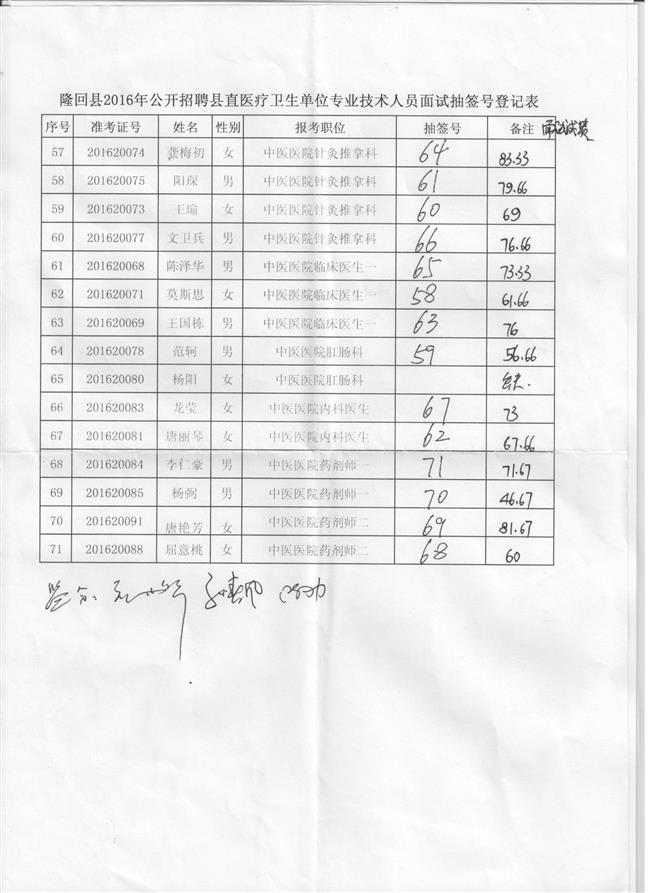 隆回县2016年公开招聘县直医疗卫生单位专业技术人员面试抽签号登记表
序号 准考证号 姓名 性别 报考职位 抽签号 备注 面试成绩
57 201620074 龚梅初 女 中医医院针灸推拿科 64 83.33
58 201620075 阳琛 男 中医医院针灸推拿科 61 79.66
59 201620073 王瑜 女 中医医院针灸推拿科 60 69
60 201620077 文卫兵 男 中医医院针灸推拿科 66 76.66
61 201620068 陈泽华 男 中医医院临床医生一 65 73.33
62 201620071 莫斯思 女 中医医院临床医生一 58 61.66
63 201620069 王国栋 男 中医医院临床医生一 63 76
64 201620078 范轲 男 中医医院肛肠科 59 56.66
65 201620080 杨阳 女 中医医院肛肠科
66 201620083 龙莹 女 中医医院内科医生 67 73
67 201620081 唐丽琴 女 中医医院内科医生 62 67.66
68 201620084 李仁豪 男 中医医院药剂师一 71 71.67
69 201620085 杨弼 男 中医医院药剂师一 70 46.67
70 201620091 唐艳芳 女 中医医院药剂师二 69 81.67
71 201620088 屈意桃 女 中医医院药剂师二 68 60